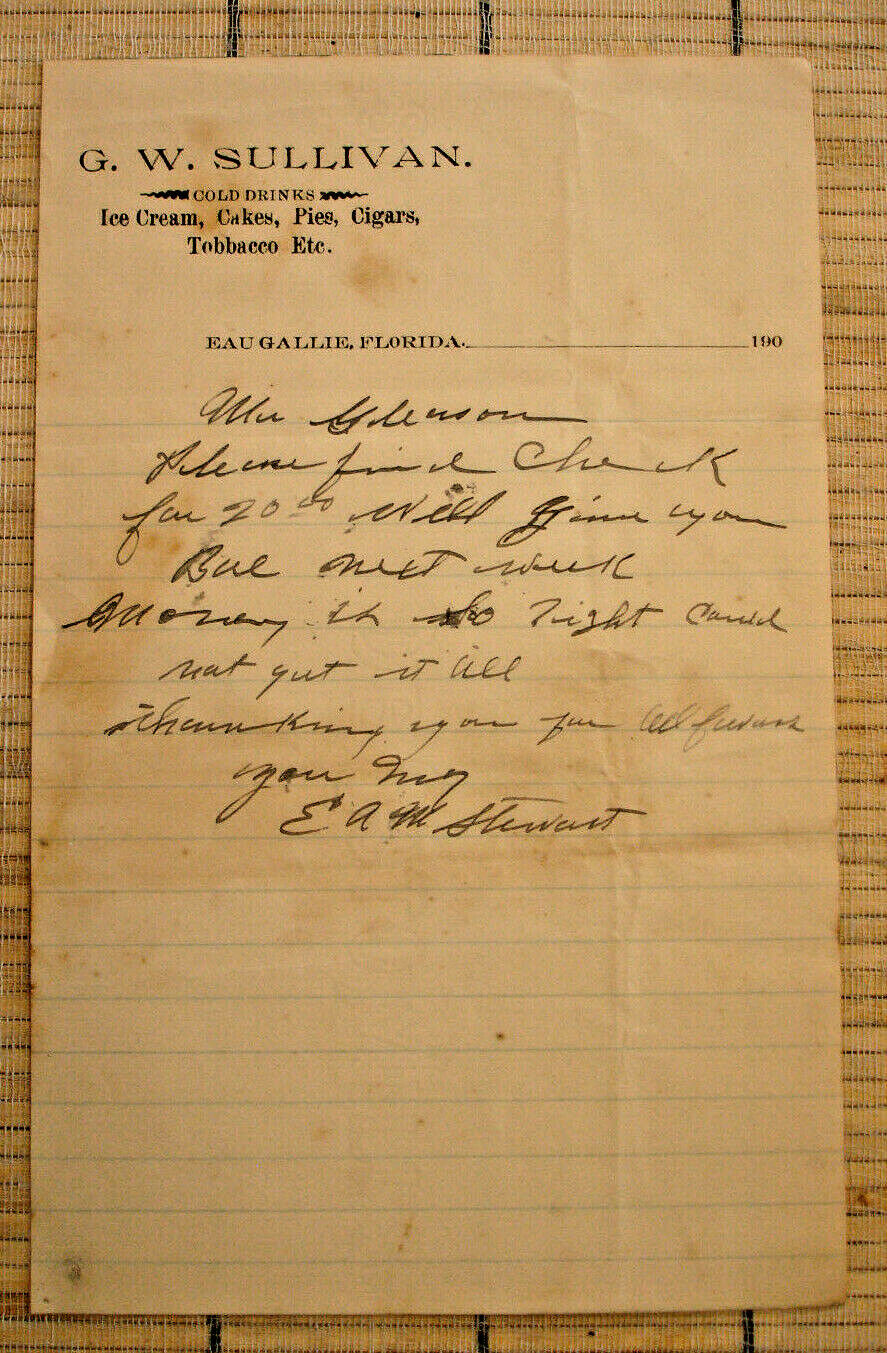 G. W. SULLIVAN.
COLD DRINKS
Ice Cream, Cakes, Pies, Cigars,
Tobbacco Etc.
EAU GALLIE, FLORIDA. 190
Mr Gleason
Please find Check
for 20 00 Will give you
Bal next week
Money is so Tight Could
not get it all
thanking you for all
you
E A M Stewart